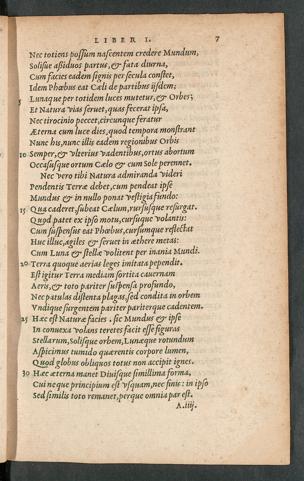 LIBER I. 7
Nec toties possum nascentem credere Mundum,
Solisue assiduos partus, & fata diurna,
Cum facies eadem signis per secula constet,
Idem Phœbus eat Cæli de partibus ijsdem;
5 Lunaque per totidem luces mutetur, & Orbes;
Et Natura vias seruet, quas fecerat ipsa,
Nec tirocinio peccet, circunque feratur
Æterna cum luce dies, quod tempora monstrant
Nunc his, nunc illis eadem regionibus Orbis
10 Semper, & vlterius vadentibus, ortus abortum
Occasusque ortum Cælo & cum Sole perennet.
Nec vero tibi Natura admiranda videri
Pendentis Terræ debet, cum pendeat ipse
Mundus & in nullo ponat vestigia fundo:
15 Qua caderet, subeat Cælum, rursusque resurgat.
Quod patet ex ipso motu, cursuque volantis:
Cum suspensus eat Phœbus, cursumque reflectat
Huc illuc, agiles & seruet in æthere metas:
Cum Luna & stellæ volitent per inania Mundi.
20 Terra quoque aerias leges imitata pependit.
Est igitur Terra mediam sortita cauernam
Aeris, & toto pariter suspensa profundo,
Nec patulas distenta plagas, sed condita in orbem
Vndique surgentem pariter pariterque cadentem.
25 Hæc est Naturæ facies. sic Mundus & ipse
In conuexa volans teretes facit esse figuras
Stellarum, Solisque orbem, Lunæque rotundum
Aspicimus tumido quærentis corpore lumen,
Quod globus obliquos totus non accipit ignes.
30 Hæc æterna manet Diuisque simillima forma,
Cui neque principium est vsquam, nec finis: in ipso
Sed similis toto remanet, perque omnia par est.
A.iiij.